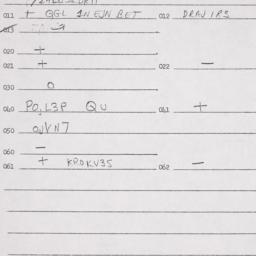 011 + QGL 1NEJN BET 012 DRAVIPS
013
020 +
021 + 022 —
030 O
060 PO,L3P QU 061 +
050 OJVN7
060 —
061 + KROKV35 062 —